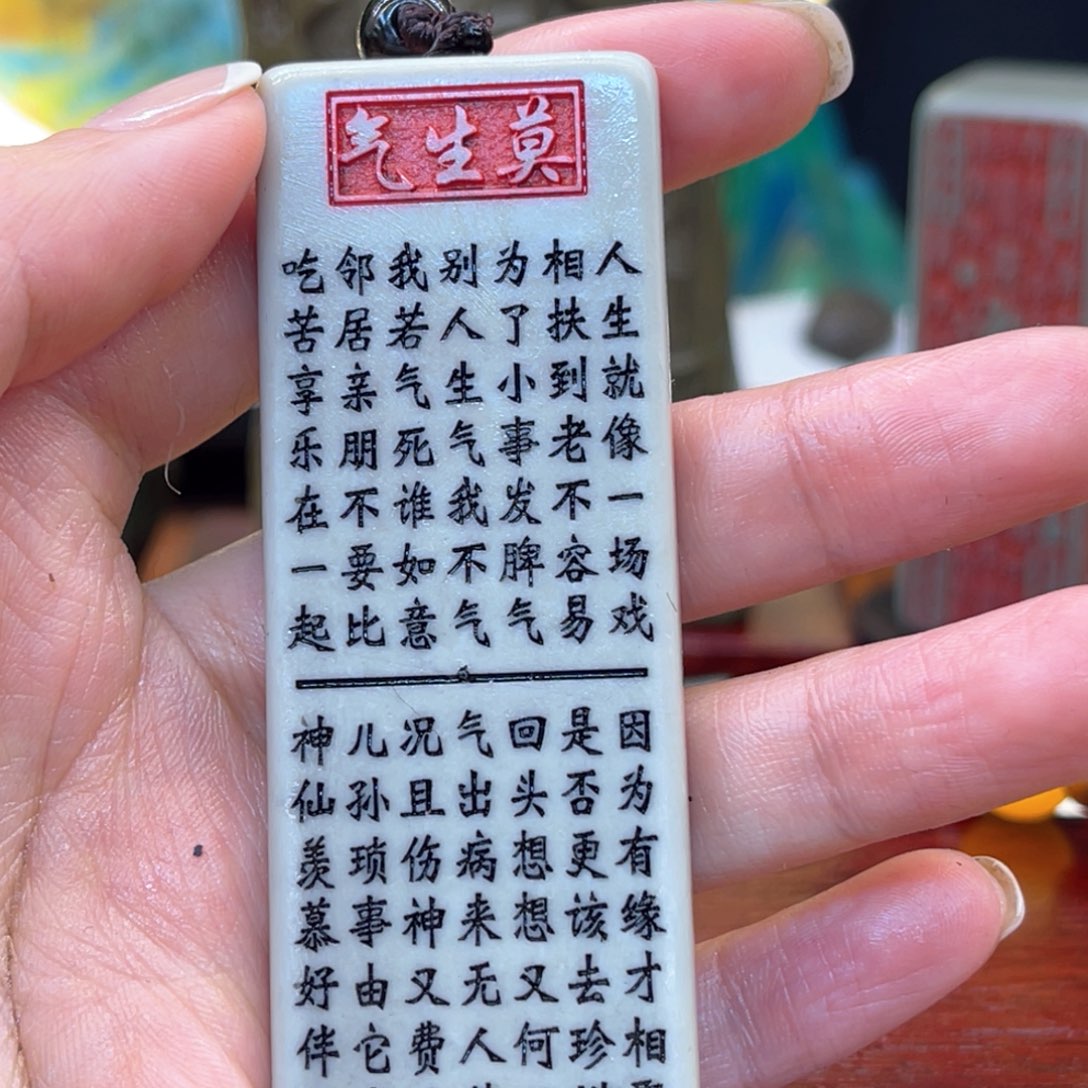 莫生气
人生就像一场戏
相扶到老不容易
为了小事发脾气
别人生气我不气
我若气死谁如意
邻居亲朋不要比
吃苦享乐在一起
因为有缘才相
是否更该去珍
回头想想又何
气出病来无人
况且伤神又费
儿孙琐事由它
神仙羡慕好伴